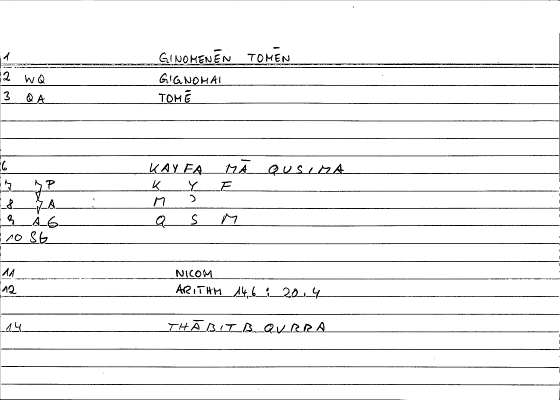 1 GINOMENĒN TOMĒN
2 WQ GIGNOMAI
3 QA TOMĒ
6 KAYFA MĀ QUSIMA
7 P K Y F
8 A M ʾ
9 AG Q S M
10 SG
11 NICOM
12 ARITHM 146 : 20.4
14 THĀBIT B. QURRA